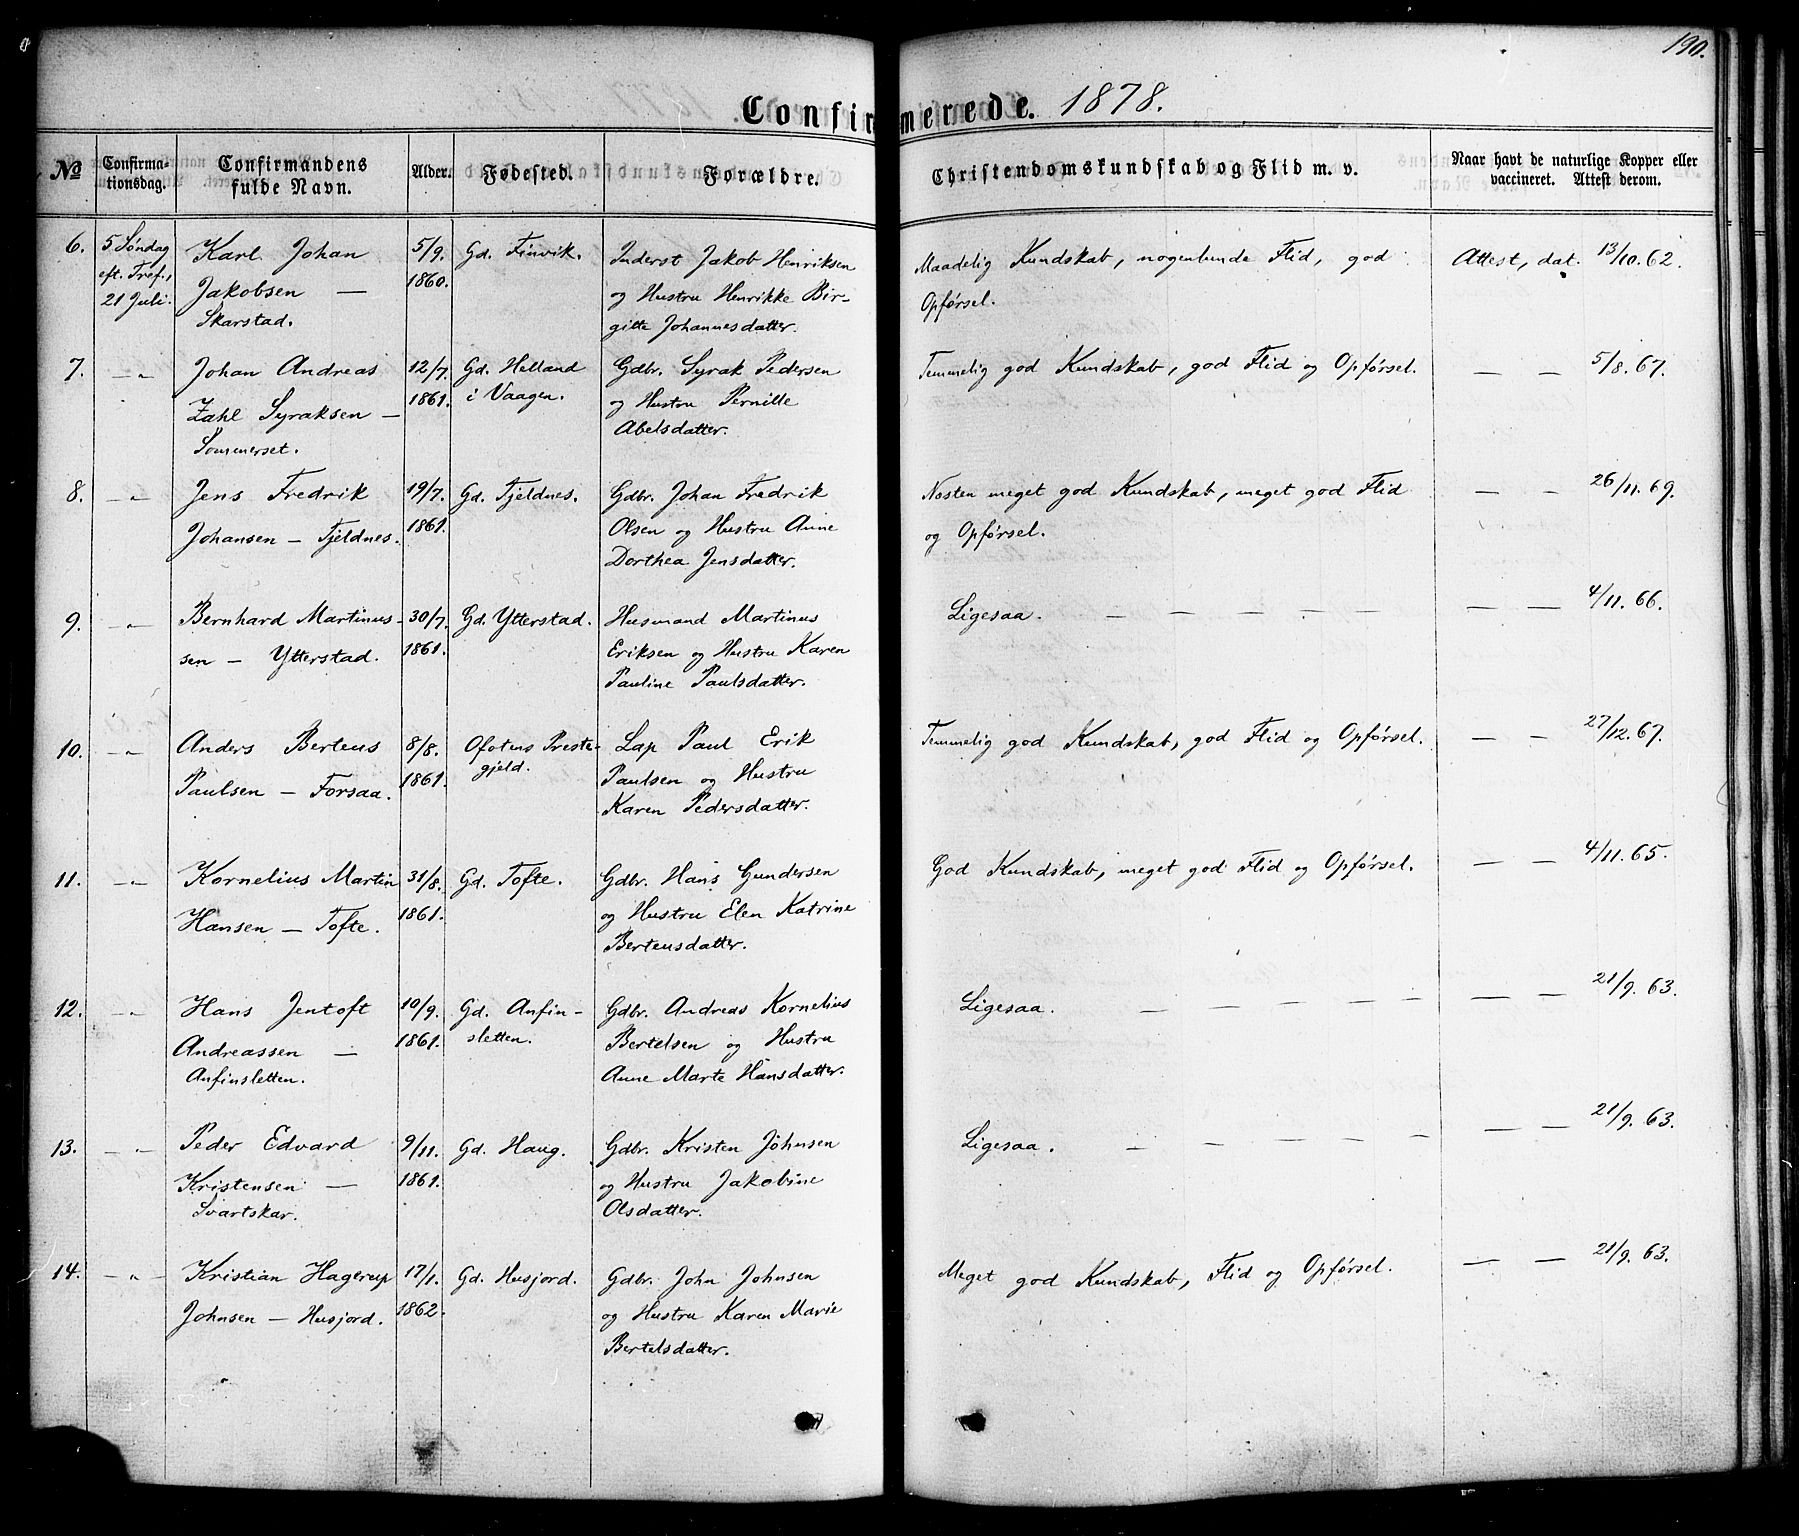 190.
Confirmerede. 1878.
No
Confirma-
tionsdag.
Confirmandens
fulde Navn.
Alder.
Fødested.
Forældre.
Christendomskundskab og Flid m. v.
Naar havt de naturlige Kopper eller
vaccineret. Attest derom.
6.
5 Søndag
eft. Tref.,
21 Juli.
Karl Johan
Jakobsen —
Skarstad.
5/9.
1860.
Gd. Finvik.
Inderst Jakob Henriksen
og Hustru Henrikke Bir-
gitte Johannesdatter.
Maadelig Kundskab, nogenlunde Flid, god
Opførsel.
Attest, dat. 13/10. 62.
7.
— „
Johan Andreas
Zahl Syraksen —
Sommerset.
12/7.
1861.
Gd. Helland
i Vaagen.
Gdbr. Syrak Pedersen
og Hustru Pernille
Abelsdatter.
Temmelig god Kundskab, god Flid og Opførsel.
— — 5/8. 67.
8.
— „
Jens Fredrik
Johansen — Fjeldnes.
19/7.
1861.
Gd. Fjeldnes.
Gdbr. Johan Fredrik
Olsen og Hustru Anne
Dorthea Jensdatter.
Næsten meget god Kundskab, meget god Flid
og Opførsel.
— — 26/11. 69.
9.
— „
Bernhard Martinus-
sen — Ytterstad.
30/7.
1861.
Gd. Ytterstad.
Husmand Martinus
Eriksen og Hustru Karen
Pauline Paulsdatter.
Ligesaa. — — — — —
— — 4/11. 66.
10.
— „
Anders Berteus
Paulsen — Forsaa.
8/8.
1861.
Ofotens Preste-
gjeld.
Lap Paul Erik
Paulsen og Hustru
Karen Pedersdatter.
Temmelig god Kundskab, god Flid og Opførsel.
— — 27/12. 67.
11.
— „
Kornelius Martin
Hansen — Tofte.
31/8.
1861.
Gd. Tofte.
Gdbr. Hans Gundersen
og Hustru Elen Katrine
Berteusdatter.
God Kundskab, meget god Flid og Opførsel.
— — 4/11. 65.
12.
— „
Hans Jentoft
Andreassen —
Anfinsletten.
10/9.
1861.
Gd. Anfin-
sletten.
Gdbr. Andreas Kornelius
Bertelsen og Hustru
Anne Marte Hansdatter.
Ligesaa. — — — — —
— — 21/9. 63.
13.
— „
Peder Edvard
Kristensen —
Svartskar.
9/11.
1861.
Gd. Haug.
Gdbr. Kristen Johnsen
og Hustru Jakobine
Olsdatter.
Ligesaa. — — — — —
— — 21/9. 63.
14.
— „
Kristian Hagerup
Johnsen — Husjord.
17/1.
1862.
Gd. Husjord.
Gdbr. John Johnsen
og Hustru Karen Marie
Bertelsdatter.
Meget god Kundskab, Flid og Opførsel.
— — 21/9. 63.